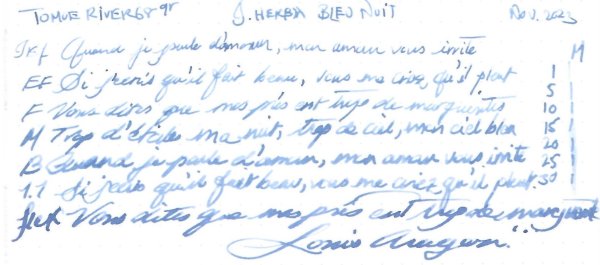 TOMOE RIVER 68 gr J. HERBIN BLEU NUIT Nov. 2023
Quand je parle d'amour, mon amour vous irrite M
EF Si j'écris qu'il fait beau, vous me criez qu'il pleut 1
5
F Vous dites que mes prés ont trop de marguerites 10
M Trop d'étoiles ma nuit, trop de ciel, mon ciel bleu 15
20
B Quand je parle d'amour, mon amour vous irrite 25
1.1 Si j'écris qu'il fait beau, vous me criez qu'il pleut 30
flex Vous dites que mes prés ont trop de marguerites
Louis Aragon